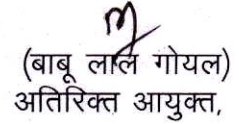 (बाबू लाल गोयल)
अतिरिक्त आयुक्त,